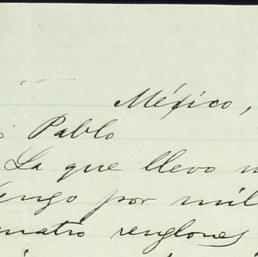 México,
Pablo
La que llevo
tengo por mil
cuatro renglones